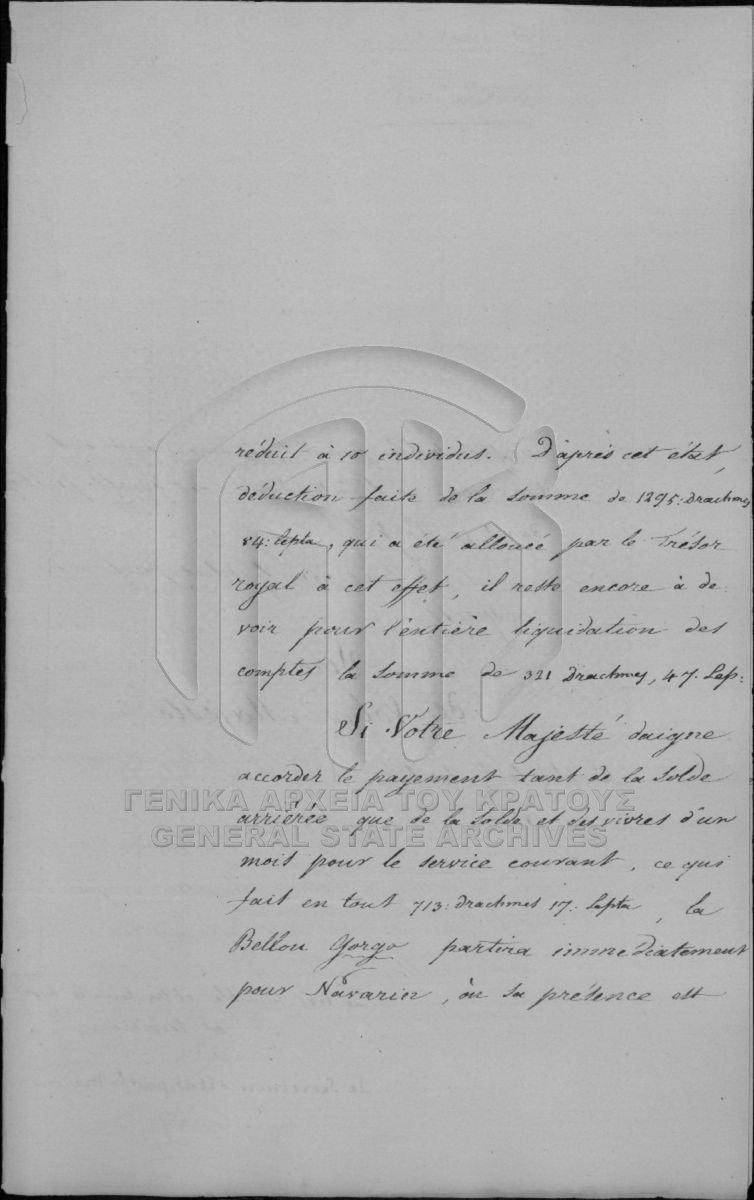 réduit à 10 individus. D'après cet état
déduction faite de la somme de 1295: Drachmes
84: lepta, qui a été allouée par le Trésor
royal à cet effet, il reste encore à de-
voir pour l'entière liquidation des
comptes la somme de 321 Drachmes, 47. Lep:
Si Votre Majesté daigne
accorder le payement tant de la solde
ΓΕΝΙΚΑ ΑΡΧΕΙΑ ΤΟΥ ΚΡΑΤΟΥΣ
arriérée que de la solde et des vivres d'un
GENERAL STATE ARCHIVES
mois pour le service courant, ce qui
fait en tout 713: drachmes 17. lepta, la
Bellou Gorgo partira immédiatement
pour Navarin, où sa présence est